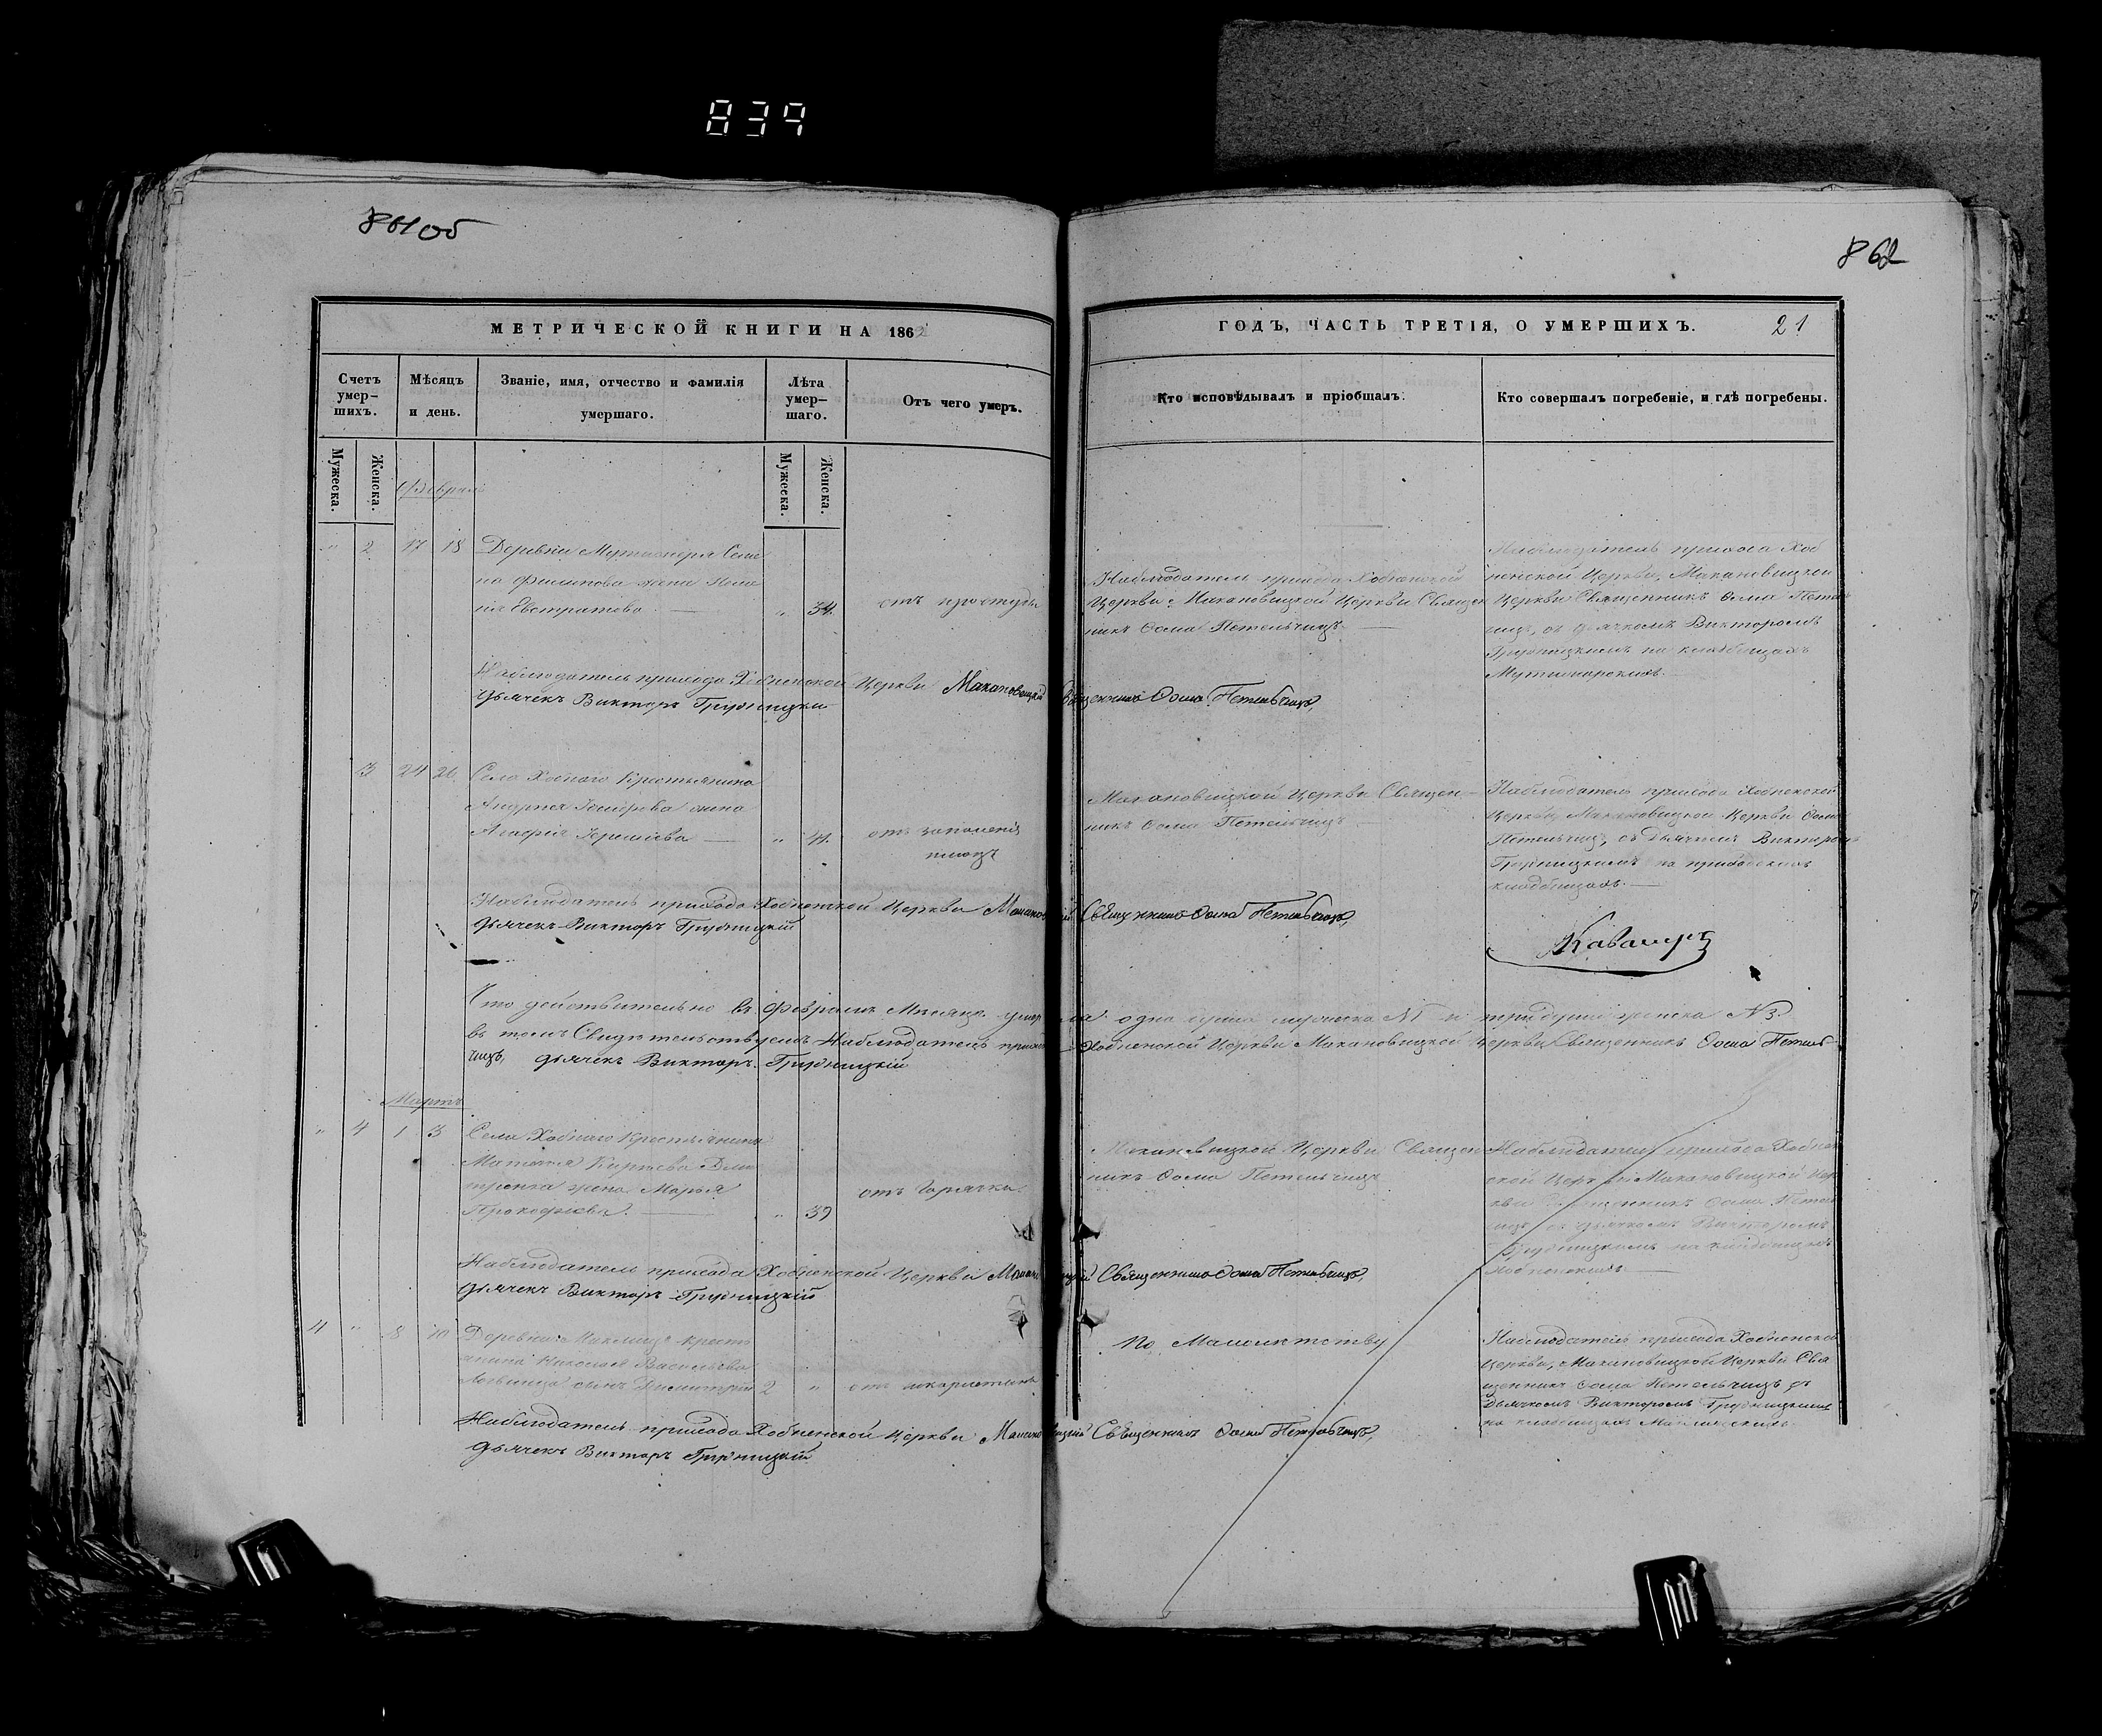 839
861об
862
МЕТРИЧЕСКОЙ КНИГИ НА 1862
ГОДЪ, ЧАСТЬ ТРЕТІЯ, О УМЕРШИХЪ. 21
Счетъ умер-шихъ.
Мѣсяцъ и день.
Званіе, имя, отчество и фамилія умершаго.
Лѣта умер-шаго.
Отъ чего умеръ.
Кто исповѣдывалъ и пріобщалъ.
Кто совершалъ погребеніе, и гдѣ погребены.
Мужеска.
Женска.
Мужеска.
Женска.
Февраль
" 2 17 18 Деревни
на Филипова жена
Евстратова " 34 отъ простуды
Наблюдатель прихода Хобненской
Церкви, Макановицкой Церкви Священ
никъ Ѳома Петельчицъ
Наблюдатель прихода Хоб
ненской Церкви, Макановицкой
Церкви Священникъ Ѳома Петель
чицъ, съ дьячкомъ Викторомъ
Грудницкимъ на кладбищахъ
Наблюдатель прихода Хобненской Церкви Макановицкій Священникъ Ѳома Петельчицъ,
Дьячекъ Викторъ Грудницкій
3 24 26 Села Хобнаго Крестьянина
Андрея жена
Агафія " 44 отъ
Макановицкой Церкви Священ-
никъ Ѳома Петельчицъ
Наблюдатель прихода Хобненской
Церкви, Макановицкой Церкви Ѳома
Петельчицъ, съ Дьячкомъ Викторомъ
Грудницкимъ на приходскихъ
кладбищахъ.
Наблюдатель прихода Хобненской Церкви Макановицкій Священникъ Ѳома Петельчицъ,
Дьячекъ Викторъ Грудницкій
Что действительно въ Февралѣ Мѣсяцѣ умерла одна душа мужеска №1 и три души женска №3.
въ томъ Свидѣтельствуемъ Наблюдатель прихода Хобненской Церкви Макановицкой Церкви Священникъ Ѳома Петель-
чицъ, дьячекъ Викторъ Грудницкій
Мартъ
" 4 1 3 Села Хобнаго Крестьянина
Матвея Киреева
жена Марья
Прокофіева. " 39 отъ Горячки
Макановицкой Церкви Священ
никъ Ѳома Петельчицъ
Наблюдатель прихода Хобнен
ской Церкви Макановицкой Цер
кви Священникъ Ѳома Петель
чицъ, съ дьячкомъ Викторомъ
Грудницкимъ на кладбищахъ
Хобненскихъ
Наблюдатель прихода Хобненской Церкви Макановицкій Священникъ Ѳома Петельчицъ,
Дьячекъ Викторъ Грудницкій
4 " 8 10 Деревни крестьянина Николая Васильева
сынъ Димитрій 2 " отъ скарлатины
По Малолѣтству
Наблюдатель прихода Хобненской
Церкви, Макановицкой Церкви Свя
щенникъ Ѳома Петельчицъ съ
Дьячкомъ Викторомъ Грудницкимъ
на кладбищахъ
Наблюдатель прихода Хобненской Церкви Макановицкій Священникъ Ѳома Петельчицъ,
Дьячекъ Викторъ Грудницкій